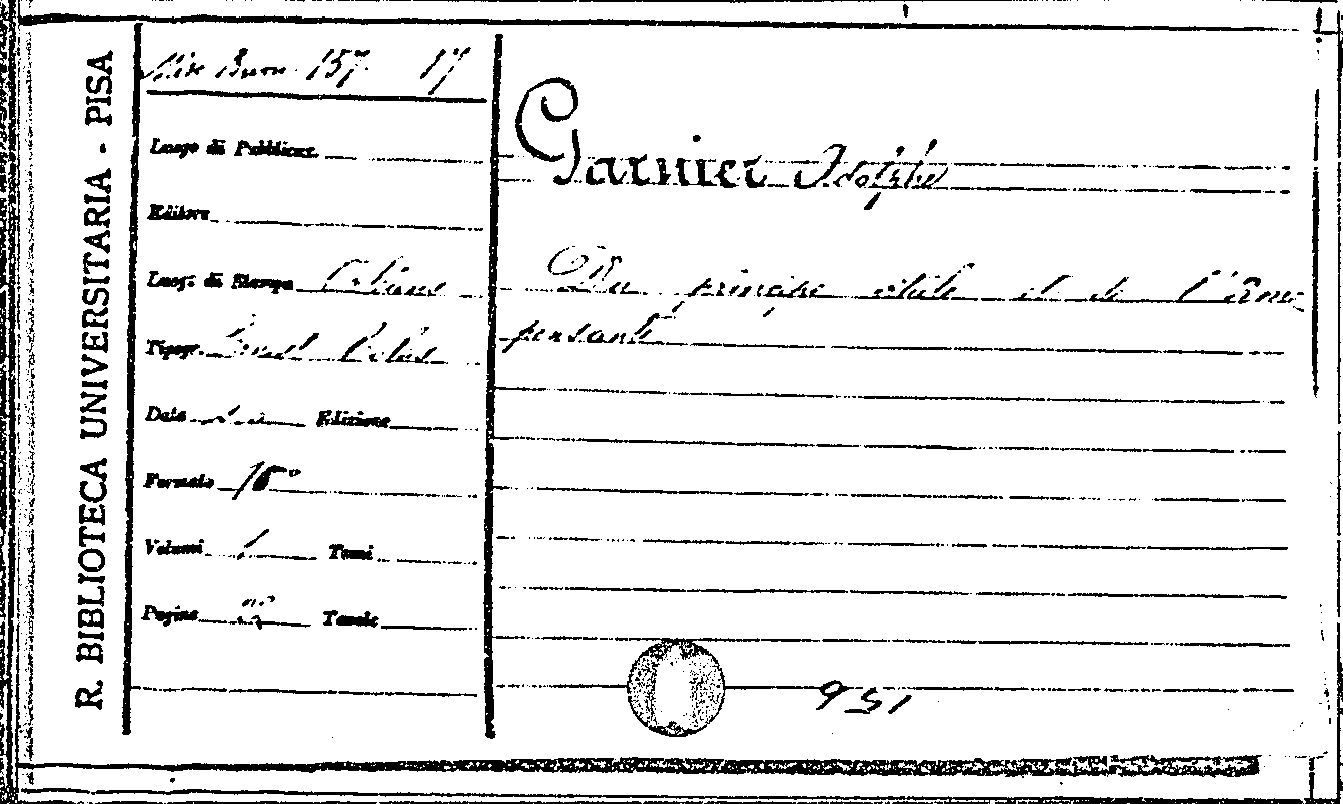 R. BIBLIOTECA UNIVERSITARIA - PISA
Misc Burn. 157. 17
Luogo di Pubblicaz.
Editore
Luogo di Stampa Orléans
Tipogr. Colas
Data Edizione
Formato 16°
Volumi 1 Tomi
Pagine Tavole
Garnier Adolphe
Du principe vitale et de l'âme
pensante
951